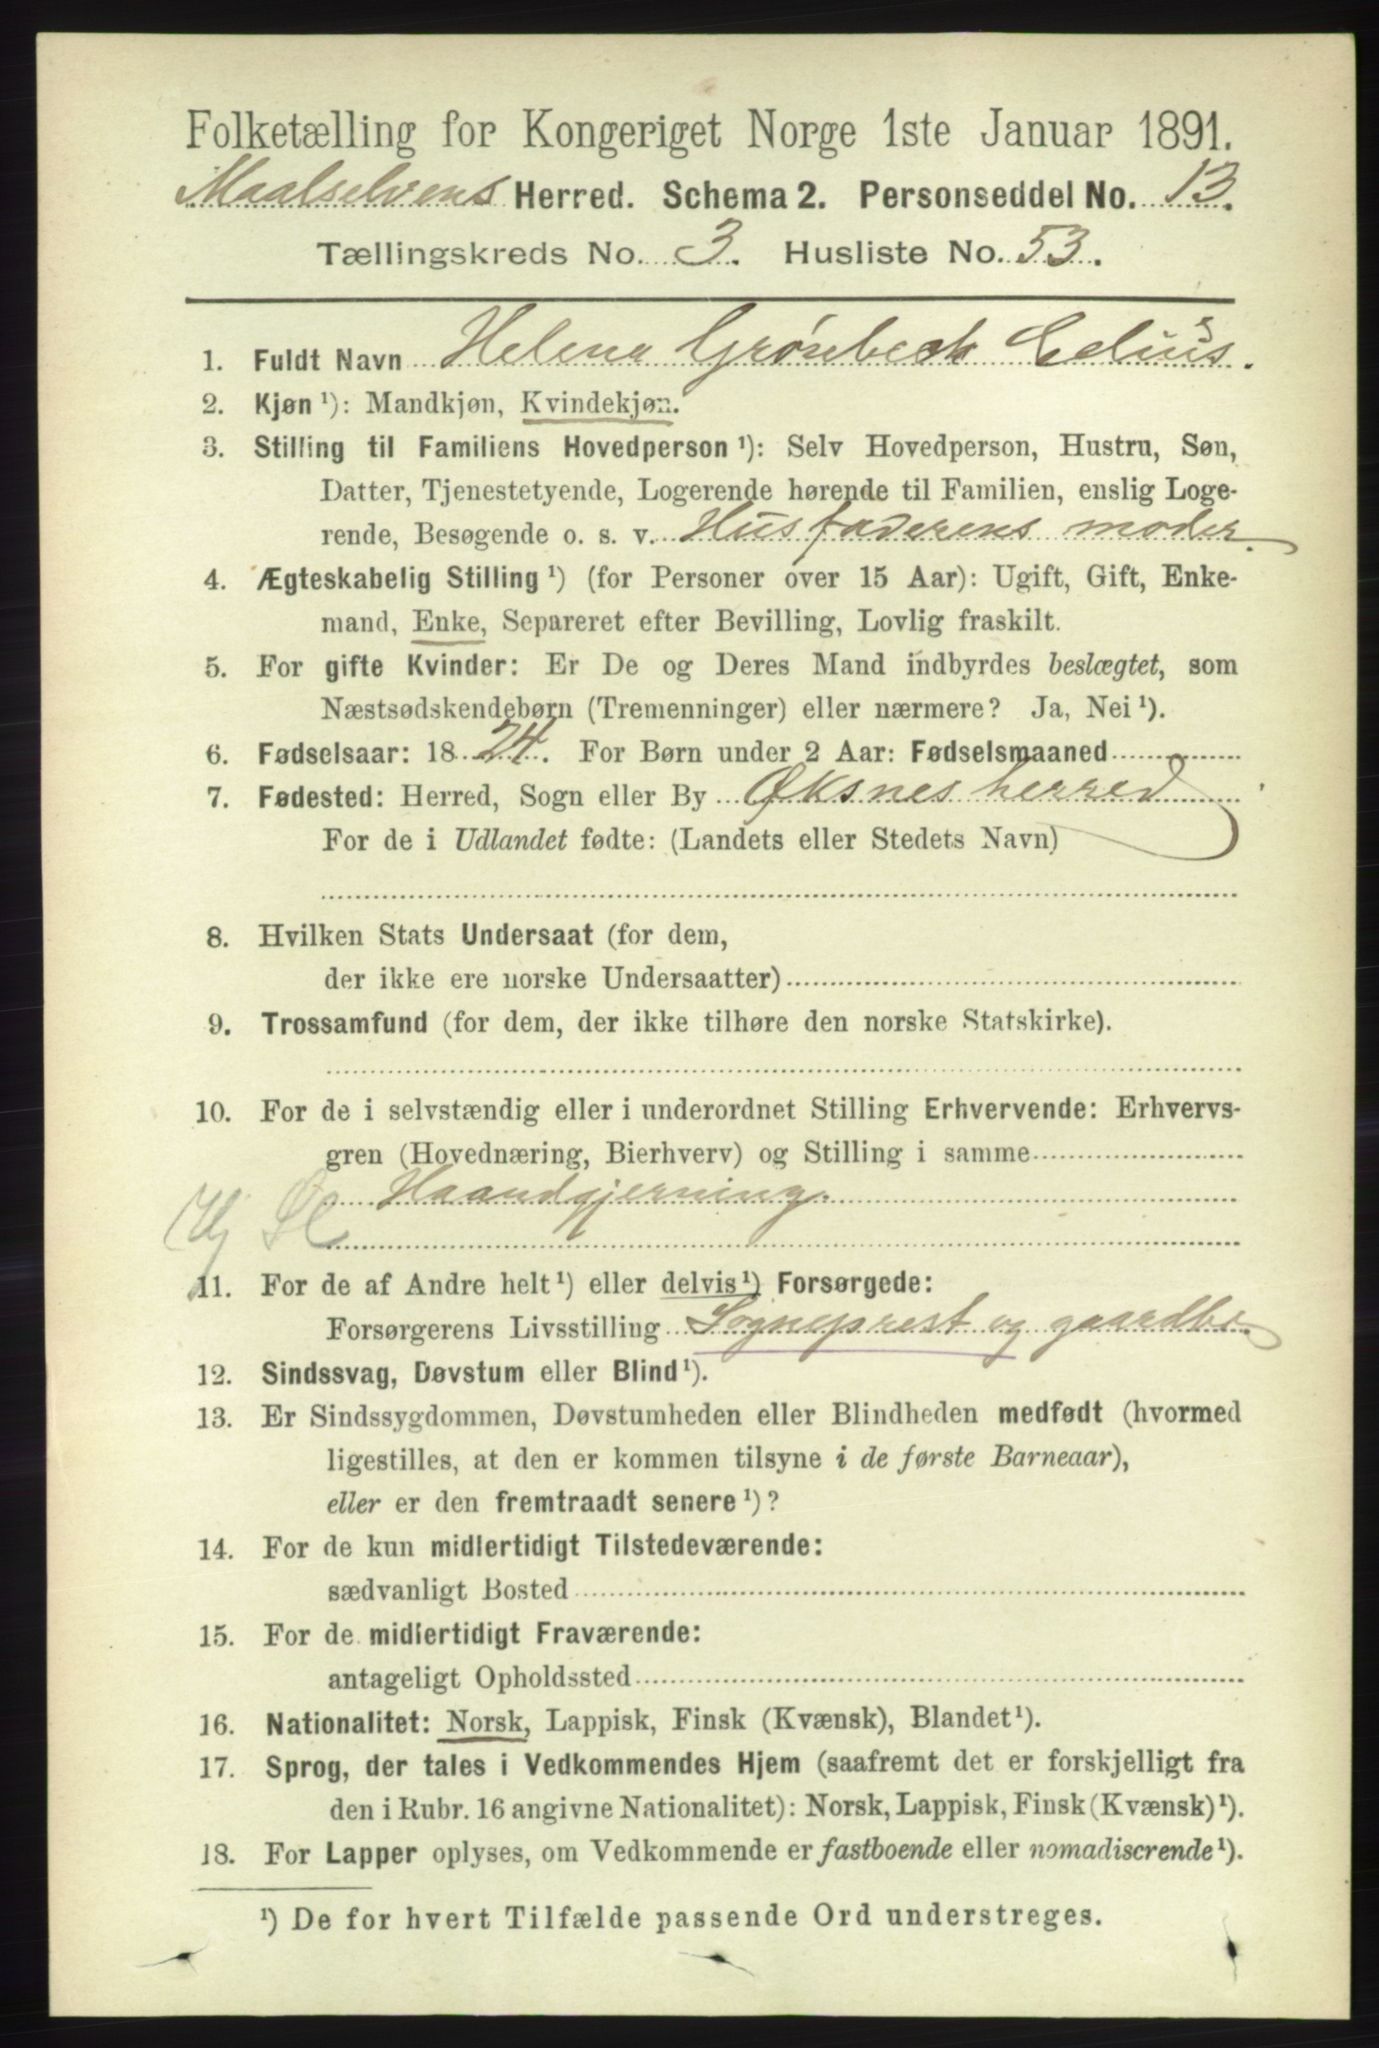 Folketælling for Kongeriget Norge 1ste Januar 1891.
Maalselvens Herred. Schema 2. Personseddel No. 13.
Tællingskreds No. 3. Husliste No. 53.
1. Fuldt Navn Helena Grønbech Celius.
2. Kjøn ¹): Mandkjøn, Kvindekjøn.
3. Stilling til Familiens Hovedperson ¹): Selv Hovedperson, Hustru, Søn,
Datter, Tjenestetyende, Logerende hørende til Familien, enslig Loge-
rende, Besøgende o. s. v. Husfaderens moder.
4. Ægteskabelig Stilling ¹) (for Personer over 15 Aar): Ugift, Gift, Enke-
mand, Enke, Separeret efter Bevilling, Lovlig fraskilt.
5. For gifte Kvinder: Er De og Deres Mand indbyrdes beslægtet, som
Næstsødskendebørn (Tremenninger) eller nærmere? Ja, Nei ¹).
6. Fødselsaar: 1824. For Børn under 2 Aar: Fødselsmaaned
7. Fødested: Herred, Sogn eller By Øksnes herred
For de i Udlandet fødte: (Landets eller Stedets Navn)
8. Hvilken Stats Undersaat (for dem,
der ikke ere norske Undersaatter)
9. Trossamfund (for dem, der ikke tilhøre den norske Statskirke).
10. For de i selvstændig eller i underordnet Stilling Erhvervende: Erhvervs-
gren (Hovednæring, Bierhverv) og Stilling i samme
Haandgjerning.
11. For de af Andre helt ¹) eller delvis ¹) Forsørgede:
Forsørgerens Livsstilling Sogneprest og gaardbr.
12. Sindssvag, Døvstum eller Blind ¹).
13. Er Sindssygdommen, Døvstumheden eller Blindheden medfødt (hvormed
ligestilles, at den er kommen tilsyne i de første Barneaar),
eller er den fremtraadt senere ¹)?
14. For de kun midlertidigt Tilstedeværende:
sædvanligt Bosted
15. For de midlertidigt Fraværende:
antageligt Opholdssted
16. Nationalitet: Norsk, Lappisk, Finsk (Kvænsk), Blandet ¹).
17. Sprog, der tales i Vedkommendes Hjem (saafremt det er forskjelligt fra
den i Rubr. 16 angivne Nationalitet): Norsk, Lappisk, Finsk (Kvænsk) ¹).
18. For Lapper oplyses, om Vedkommende er fastboende eller nomadiserende ¹).
¹) De for hvert Tilfælde passende Ord understreges.